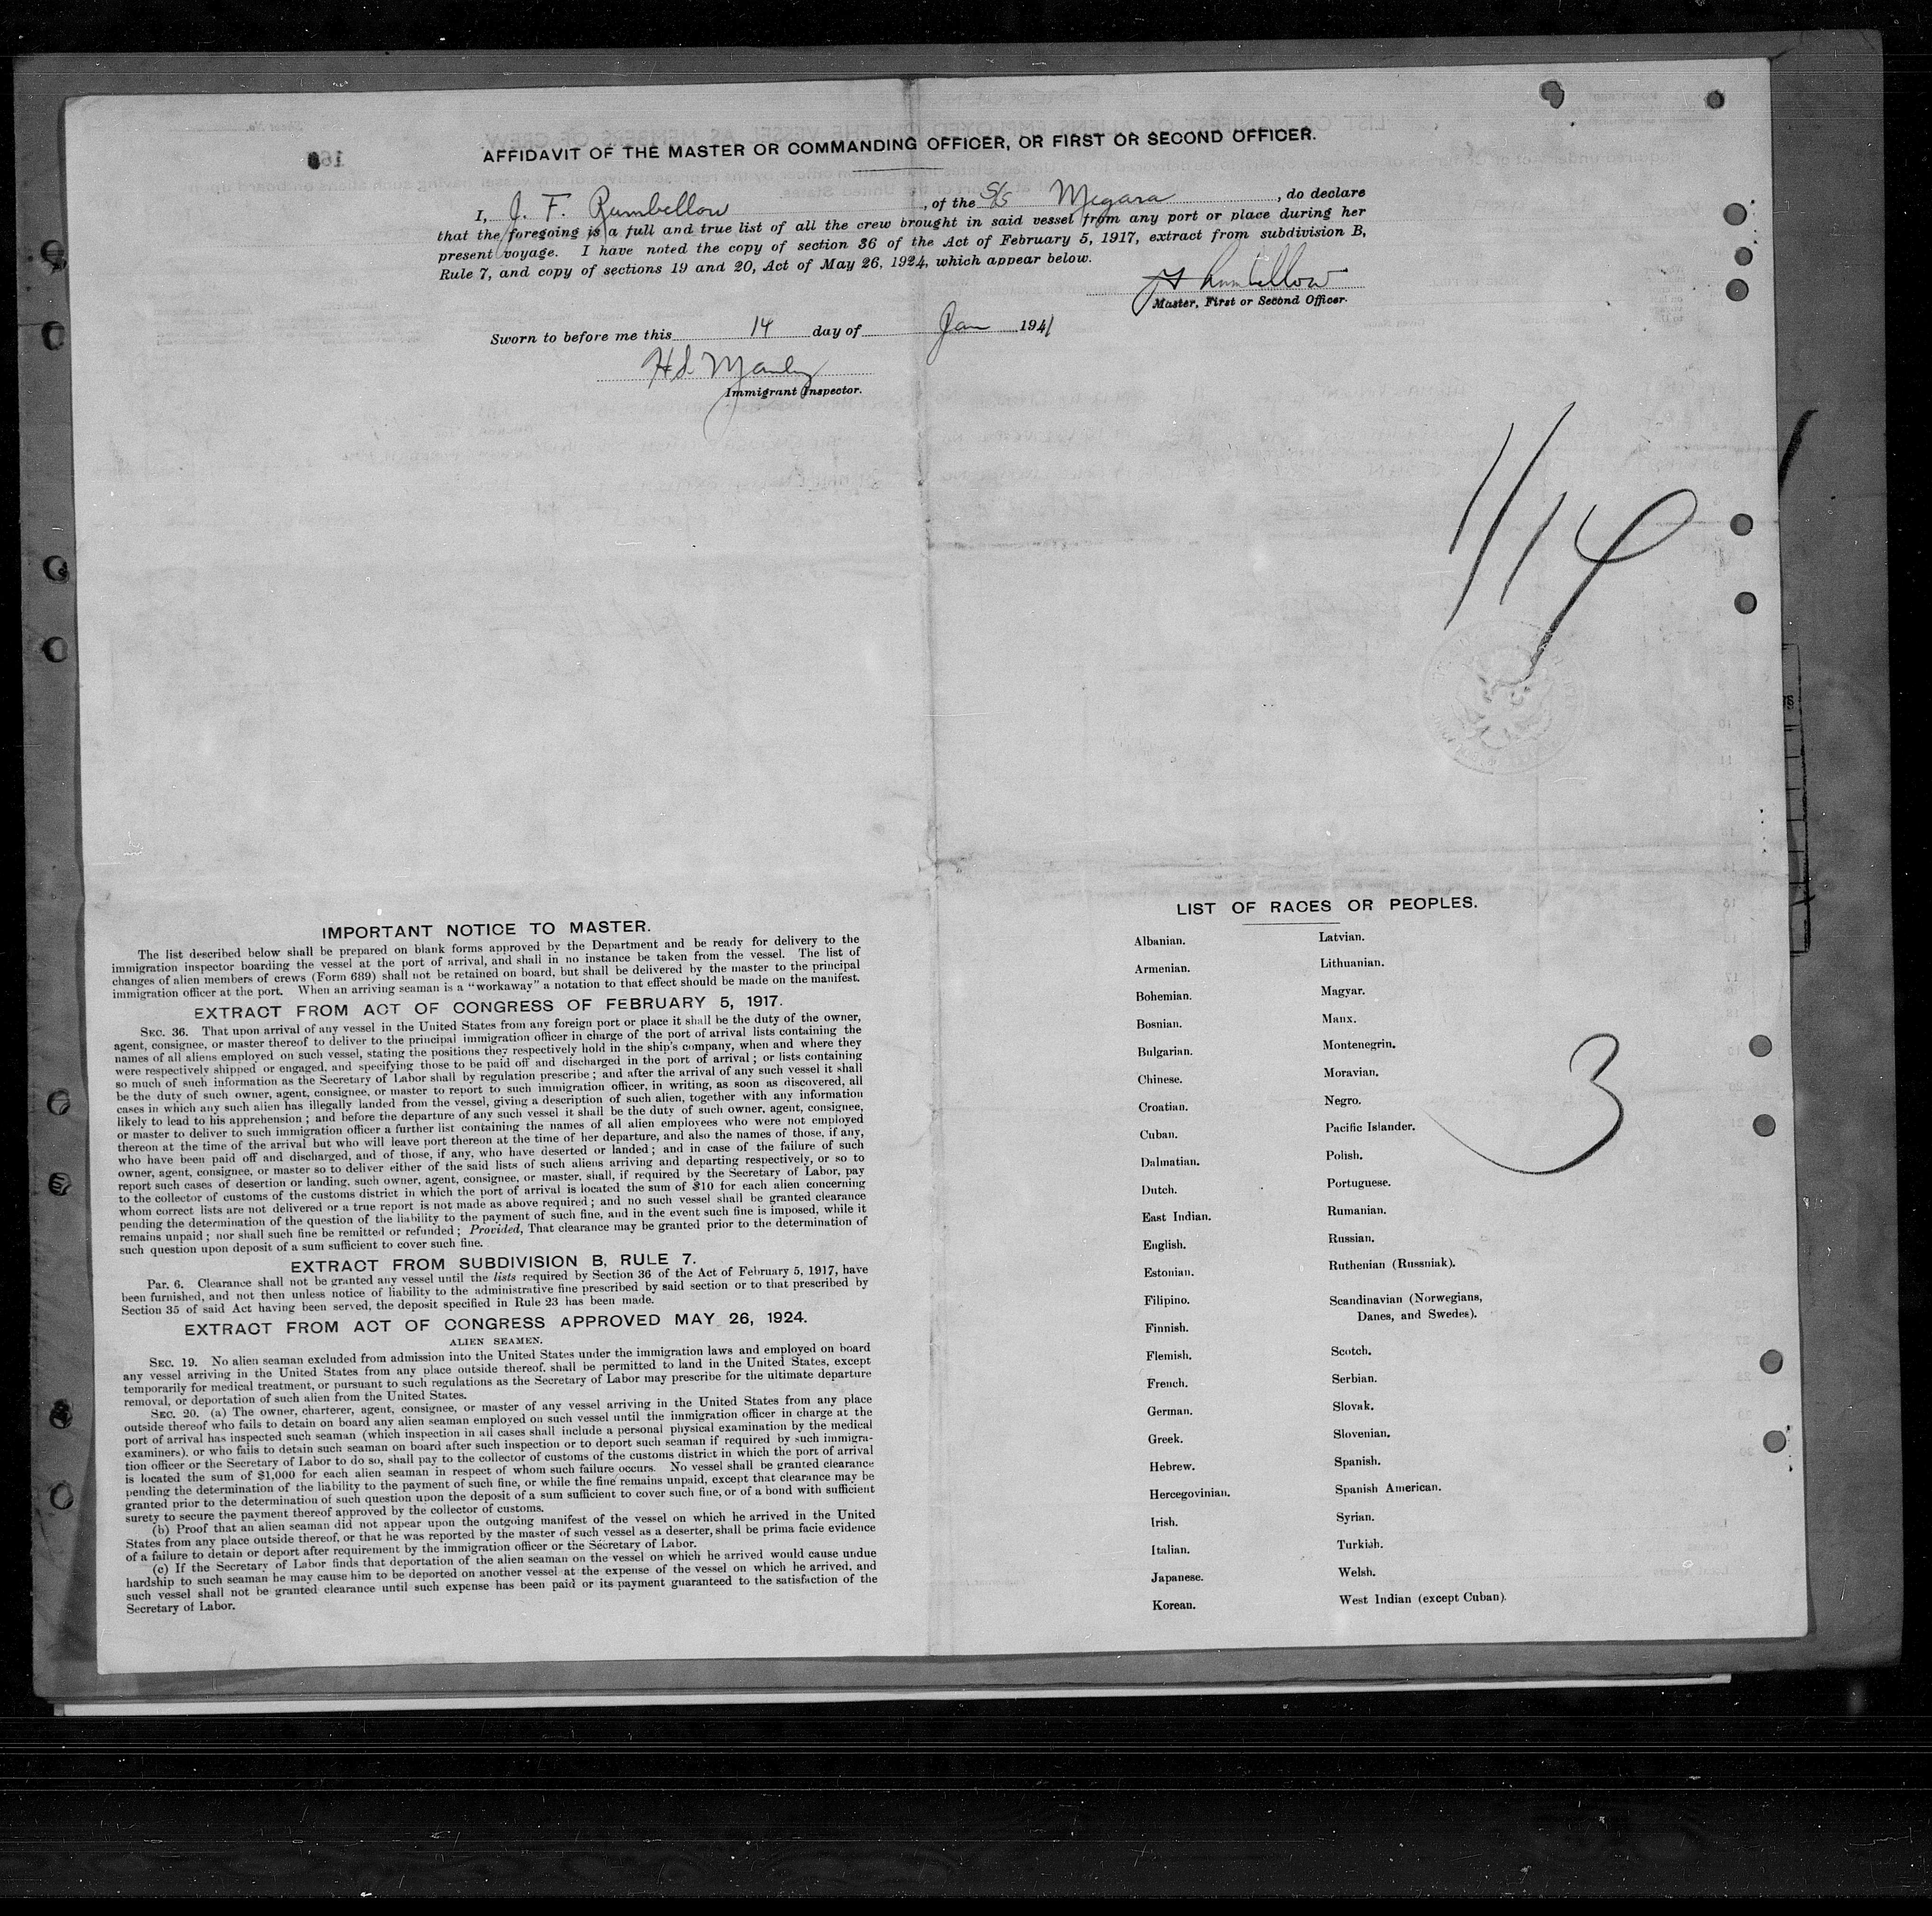 AFFIDAVIT OF THE MASTER OR COMMANDING OFFICER, OR FIRST OR SECOND OFFICER.
I, J. F. Rumbellow, of the S/S Megara, do declare
that the foregoing is a full and true list of all the crew brought in said vessel from any port or place during her
present voyage. I have noted the copy of section 36 of the Act of February 5, 1917, extract from subdivision B,
Rule 7, and copy of sections 19 and 20, Act of May 26, 1924, which appear below.
J F Rumbellow
Master, First or Second Officer.
Sworn to before me this 14 day of Jan 1941
Immigrant Inspector.
1/14
IMPORTANT NOTICE TO MASTER.
The list described below shall be prepared on blank forms approved by the Department and be ready for delivery to the
immigration inspector boarding the vessel at the port of arrival, and shall in no instance be taken from the vessel. The list of
changes of alien members of crews (Form 689) shall not be retained on board, but shall be delivered by the master to the principal
immigration officer at the port. When an arriving seaman is a "workaway" a notation to that effect should be made on the manifest.
EXTRACT FROM ACT OF CONGRESS OF FEBRUARY 5, 1917.
SEC. 36. That upon arrival of any vessel in the United States from any foreign port or place it shall be the duty of the owner,
agent, consignee, or master thereof to deliver to the principal immigration officer in charge of the port of arrival lists containing the
names of all aliens employed on such vessel, stating the positions they respectively hold in the ship's company, when and where they
were respectively shipped or engaged, and specifying those to be paid off and discharged in the port of arrival; or lists containing
so much of such information as the Secretary of Labor shall by regulation prescribe; and after the arrival of any such vessel it shall
be the duty of such owner, agent, consignee, or master to report to such immigration officer, in writing, as soon as discovered, all
cases in which any such alien has illegally landed from the vessel, giving a description of such alien, together with any information
likely to lead to his apprehension; and before the departure of any such vessel it shall be the duty of such owner, agent, consignee,
or master to deliver to such immigration officer a further list containing the names of all alien employees who were not employed
thereon at the time of the arrival but who will leave port thereon at the time of her departure, and also the names of those, if any,
who have been paid off and discharged, and of those, if any, who have deserted or landed; and in case of the failure of such
owner, agent, consignee, or master so to deliver either of the said lists of such aliens arriving and departing respectively, or so to
report such cases of desertion or landing, such owner, agent, consignee, or master, shall, if required by the Secretary of Labor, pay
to the collector of customs of the customs district in which the port of arrival is located the sum of $10 for each alien concerning
whom correct lists are not delivered or a true report is not made as above required; and no such vessel shall be granted clearance
pending the determination of the question of the liability to the payment of such fine, and in the event such fine is imposed, while it
remains unpaid; nor shall such fine be remitted or refunded; Provided, That clearance may be granted prior to the determination of
such question upon deposit of a sum sufficient to cover such fine.
EXTRACT FROM SUBDIVISION B, RULE 7.
Par. 6. Clearance shall not be granted any vessel until the lists required by Section 36 of the Act of February 5, 1917, have
been furnished, and not then unless notice of liability to the administrative fine prescribed by said section or to that prescribed by
Section 35 of said Act having been served, the deposit specified in Rule 23 has been made.
EXTRACT FROM ACT OF CONGRESS APPROVED MAY 26, 1924.
ALIEN SEAMEN.
SEC. 19. No alien seaman excluded from admission into the United States under the immigration laws and employed on board
any vessel arriving in the United States from any place outside thereof, shall be permitted to land in the United States, except
temporarily for medical treatment, or pursuant to such regulations as the Secretary of Labor may prescribe for the ultimate departure
removal, or deportation of such alien from the United States.
SEC. 20. (a) The owner, charterer, agent, consignee, or master of any vessel arriving in the United States from any place
outside thereof who fails to detain on board any alien seaman employed on such vessel until the immigration officer in charge at the
port of arrival has inspected such seaman (which inspection in all cases shall include a personal physical examination by the medical
examiners), or who fails to detain such seaman on board after such inspection or to deport such seaman if required by such immigra-
tion officer or the Secretary of Labor to do so, shall pay to the collector of customs of the customs district in which the port of arrival
is located the sum of $1,000 for each alien seaman in respect of whom such failure occurs. No vessel shall be granted clearance
pending the determination of the liability to the payment of such fine, or while the fine remains unpaid, except that clearance may be
granted prior to the determination of such question upon the deposit of a sum sufficient to cover such fine, or of a bond with sufficient
surety to secure the payment thereof approved by the collector of customs.
(b) Proof that an alien seaman did not appear upon the outgoing manifest of the vessel on which he arrived in the United
States from any place outside thereof, or that he was reported by the master of such vessel as a deserter, shall be prima facie evidence
of a failure to detain or deport after requirement by the immigration officer or the Secretary of Labor.
(c) If the Secretary of Labor finds that deportation of the alien seaman on the vessel on which he arrived would cause undue
hardship to such seaman he may cause him to be deported on another vessel at the expense of the vessel on which he arrived, and
such vessel shall not be granted clearance until such expense has been paid or its payment guaranteed to the satisfaction of the
Secretary of Labor.
LIST OF RACES OR PEOPLES.
Albanian.
Armenian.
Bohemian.
Bosnian.
Bulgarian.
Chinese.
Croatian.
Cuban.
Dalmatian.
Dutch.
East Indian.
English.
Estonian.
Filipino.
Finnish.
Flemish.
French.
German.
Greek.
Hebrew.
Hercegovinian.
Irish.
Italian.
Japanese.
Korean.
Latvian.
Lithuanian.
Magyar.
Manx.
Montenegrin.
Moravian.
Negro.
Pacific Islander.
Polish.
Portuguese.
Rumanian.
Russian.
Ruthenian (Russniak).
Scandinavian (Norwegians,
Danes, and Swedes).
Scotch.
Serbian.
Slovak.
Slovenian.
Spanish.
Spanish American.
Syrian.
Turkish.
Welsh.
West Indian (except Cuban).
3